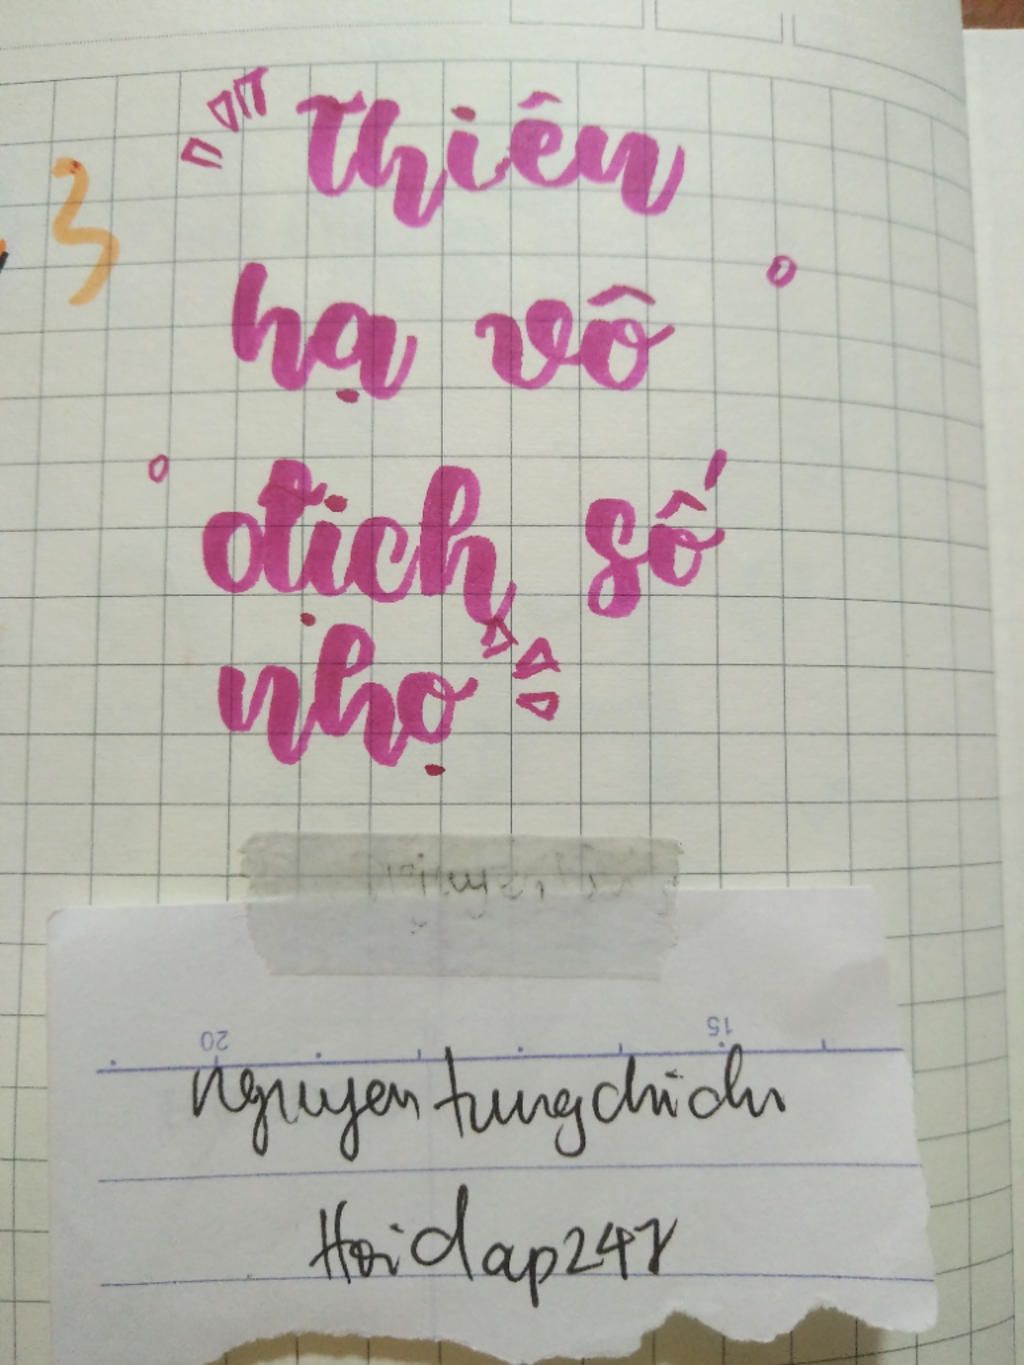 3
thiên
hạ vô
địch số
nhọ
20 15
nguyentungchichi
Hoidap247